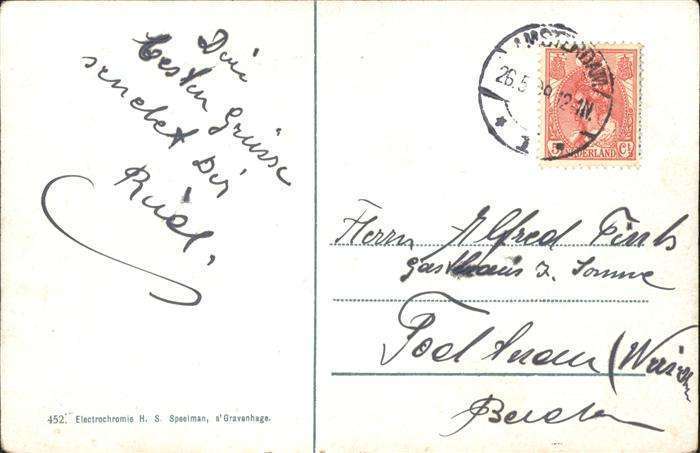 Die
besten Grüsse
sendet Dir
Rudl,
AMSTERDAM
26.5. 12-1N.
5 Ct
NEDERLAND
Herrn Alfred
Gasthaus z. Sonne
Todtnau (Wiesen
Baden
452. Electrochromie H. S. Speelman, s'Gravenhage.